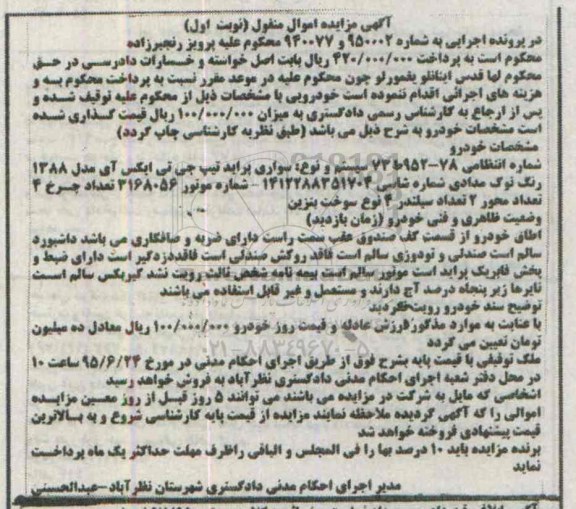 آگهی مزایده اموال منقول (نوبت اول)
در پرونده اجرایی به شماره ۹۵۰۰۰۲ و ۹۴۰۰۷۷ محکوم علیه پرویز رنجبرزاده
محکوم است به پرداخت ۴۲۰/۰۰۰/۰۰۰ ریال بابت اصل خواسته و خسارات دادرسی در حق
محکوم لها قدس اینانلو یغمورلو چون محکوم علیه در موعد مقرر نسبت به پرداخت محکوم به و
هزینه های اجرائی اقدام ننموده است خودرویی با مشخصات ذیل از محکوم علیه توقیف شده و
پس از ارجاع به کارشناس رسمی دادگستری به میزان ۱۰۰/۰۰۰/۰۰۰ ریال قیمت گذاری شده
است مشخصات خودرو به شرح ذیل می باشد (طبق نظریه کارشناسی چاپ گردد)
مشخصات خودرو
شماره انتظامی ۷۸-۹۵۲ط۷۳ سیستم و نوع: سواری پراید تیپ جی تی ایکس آی مدل ۱۳۸۸
رنگ نوک مدادی شماره شاسی ۱۴۱۲۲۸۸۳۵۱۷۰۴ - شماره موتور ۳۱۶۸۰۵۶ تعداد چرخ ۴
تعداد محور ۲ تعداد سیلندر ۴ نوع سوخت بنزین
وضعیت ظاهری و فنی خودرو (زمان بازدید)
اطاق خودرو از قسمت کف صندوق عقب سمت راست دارای ضربه و صافکاری می باشد داشبورد
سالم است صندلی و تودوزی سالم است فاقد روکش صندلی است فاقددزدگیر است دارای ضبط و
پخش فابریک پراید است موتور سالم است بیمه نامه شخص ثالث رویت نشد گیربکس سالم است
تایرها زیر پنجاه درصد آج دارند و مستعمل و غیر قابل استفاده می باشند
توضیح سند خودرو رویت نگردید
با عنایت به موارد مذکور ارزش عادله و قیمت روز خودرو ۱۰۰/۰۰۰/۰۰۰ ریال معادل ده میلیون
تومان تعیین می گردد
ملک توقیفی با قیمت پایه بشرح فوق از طریق اجرای احکام مدنی در مورخ ۹۵/۶/۲۴ ساعت ۱۰
در محل دفتر شعبه اجرای احکام مدنی دادگستری نظرآباد به فروش خواهد رسید
اشخاصی که مایل به شرکت در مزایده می باشند می توانند ۵ روز قبل از روز معین مزایده
اموالی را که آگهی گردیده ملاحظه نمایند مزایده از قیمت پایه کارشناسی شروع و به بالاترین
قیمت پیشنهادی فروخته خواهد شد
برنده مزایده باید ۱۰ درصد بها را فی المجلس و الباقی راظرف مهلت حداکثر یک ماه پرداخت
نماید
مدیر اجرای احکام مدنی دادگستری شهرستان نظرآباد-عبدالحسینی
۰۲۱-۸۸۳۴۹۶۷۰-۵